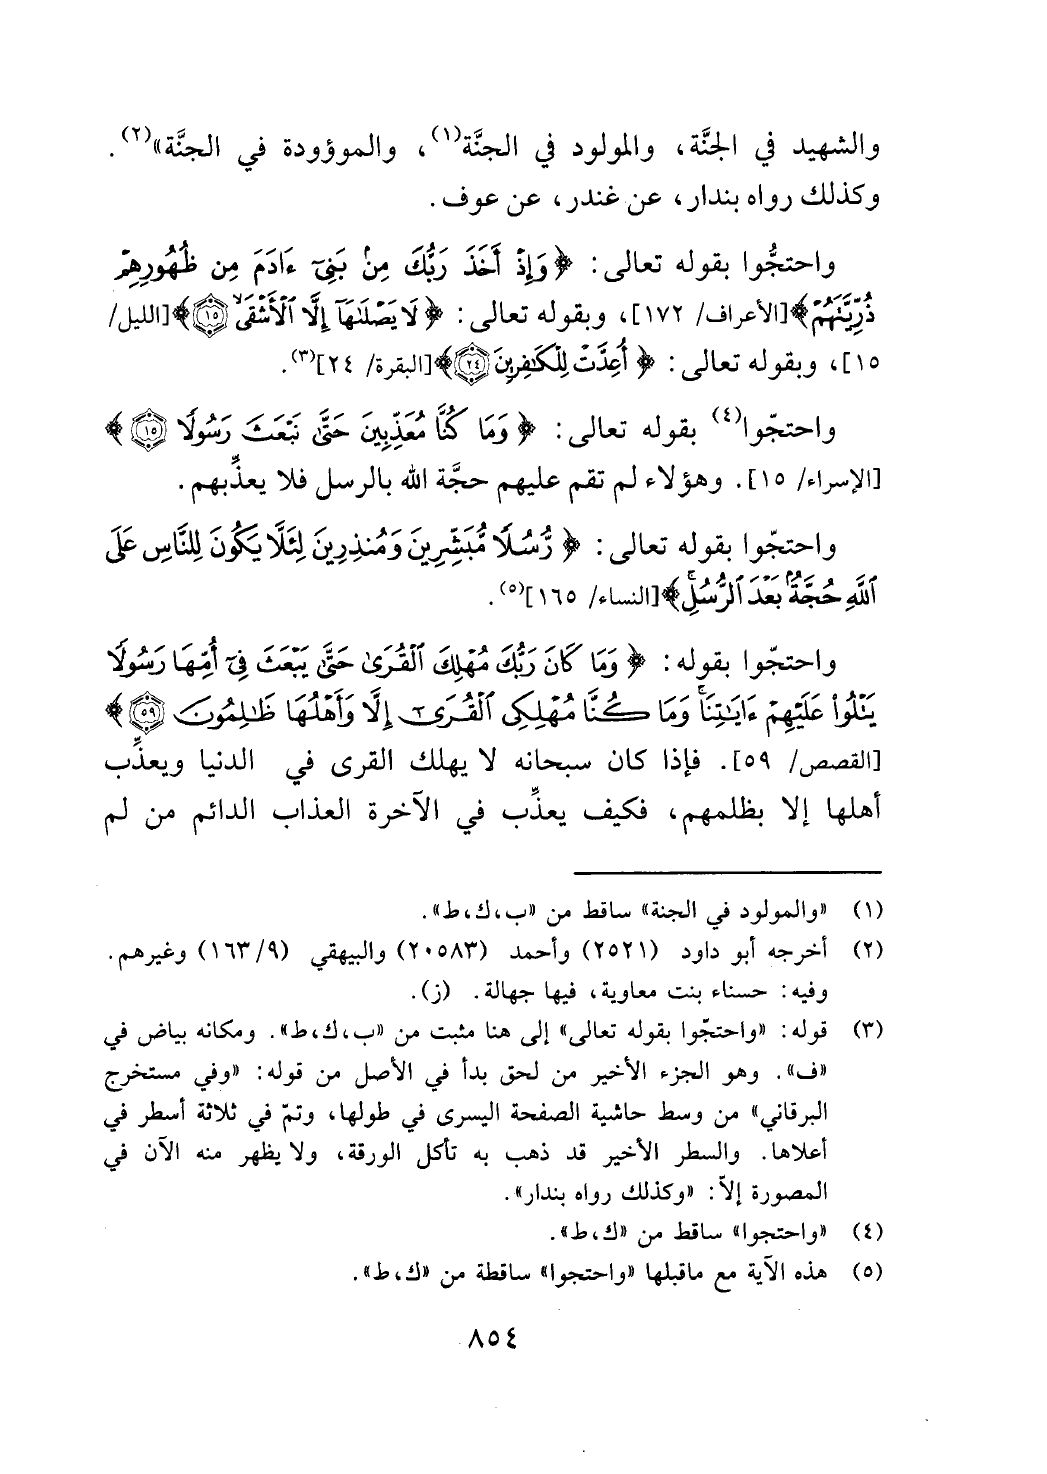 والشهيد في الجنَّة، والمولود في الجنَّة(١)، والموؤودة في الجنَّة»(٢).
وكذلك رواه بندار، عن غندر، عن عوف.
واحتجُّوا بقوله تعالى: ﴿وَإِذْ أَخَذَ رَبُّكَ مِنۢ بَنِىٓ ءَادَمَ مِن ظُهُورِهِمْ
ذُرِّيَّتَهُمْ﴾[الأعراف/ ١٧٢]، وبقوله تعالى: ﴿لَا يَصْلَىٰهَآ إِلَّا ٱلْأَشْقَىۙ ١٥﴾[الليل/
١٥]، وبقوله تعالى: ﴿أُعِدَّتْ لِلْكَٰفِرِينَ ٢٤﴾[البقرة/ ٢٤](٣).
واحتجّوا(٤) بقوله تعالى: ﴿وَمَا كُنَّا مُعَذِّبِينَ حَتَّىٰ نَبْعَثَ رَسُولًا ١٥﴾
[الإسراء/ ١٥]. وهؤلاء لم تقم عليهم حجَّة الله بالرسل فلا يعذِّبهم.
واحتجّوا بقوله تعالى: ﴿رُّسُلًا مُّبَشِّرِينَ وَمُنذِرِينَ لِئَلَّا يَكُونَ لِلنَّاسِ عَلَى
ٱللَّهِ حُجَّةٌۢ بَعْدَ ٱلرُّسُلِۚ﴾[النساء/ ١٦٥](٥).
واحتجّوا بقوله: ﴿وَمَا كَانَ رَبُّكَ مُهْلِكَ ٱلْقُرَىٰ حَتَّىٰ يَبْعَثَ فِىٓ أُمِّهَا رَسُولًا
يَتْلُوا۟ عَلَيْهِمْ ءَايَٰتِنَاۚ وَمَا كُنَّا مُهْلِكِى ٱلْقُرَىٰٓ إِلَّا وَأَهْلُهَا ظَٰلِمُونَ ٥٩﴾
[القصص/ ٥٩]. فإذا كان سبحانه لا يهلك القرى في الدنيا ويعذِّب
أهلها إلا بظلمهم، فكيف يعذِّب في الآخرة العذاب الدائم من لم
(١) «والمولود في الجنة» ساقط من «ب،ك،ط».
(٢) أخرجه أبو داود (٢٥٢١) وأحمد (٢٠٥٨٣) والبيهقي (١٦٣/٩) وغيرهم.
وفيه: حسناء بنت معاوية، فيها جهالة. (ز).
(٣) قوله: «واحتجّوا بقوله تعالى» إلى هنا مثبت من «ب،ك،ط». ومكانه بياض في
«ف». وهو الجزء الأخير من لحق بدأ في الأصل من قوله: «وفي مستخرج
البرقاني» من وسط حاشية الصفحة اليسرى في طولها، وتمّ في ثلاثة أسطر في
أعلاها. والسطر الأخير قد ذهب به تأكل الورقة، ولا يظهر منه الآن في
المصورة إلاّ: «وكذلك رواه بندار».
(٤) «واحتجوا» ساقط من «ك،ط».
(٥) هذه الآية مع ماقبلها «واحتجوا» ساقطة من «ك،ط».
٨٥٤